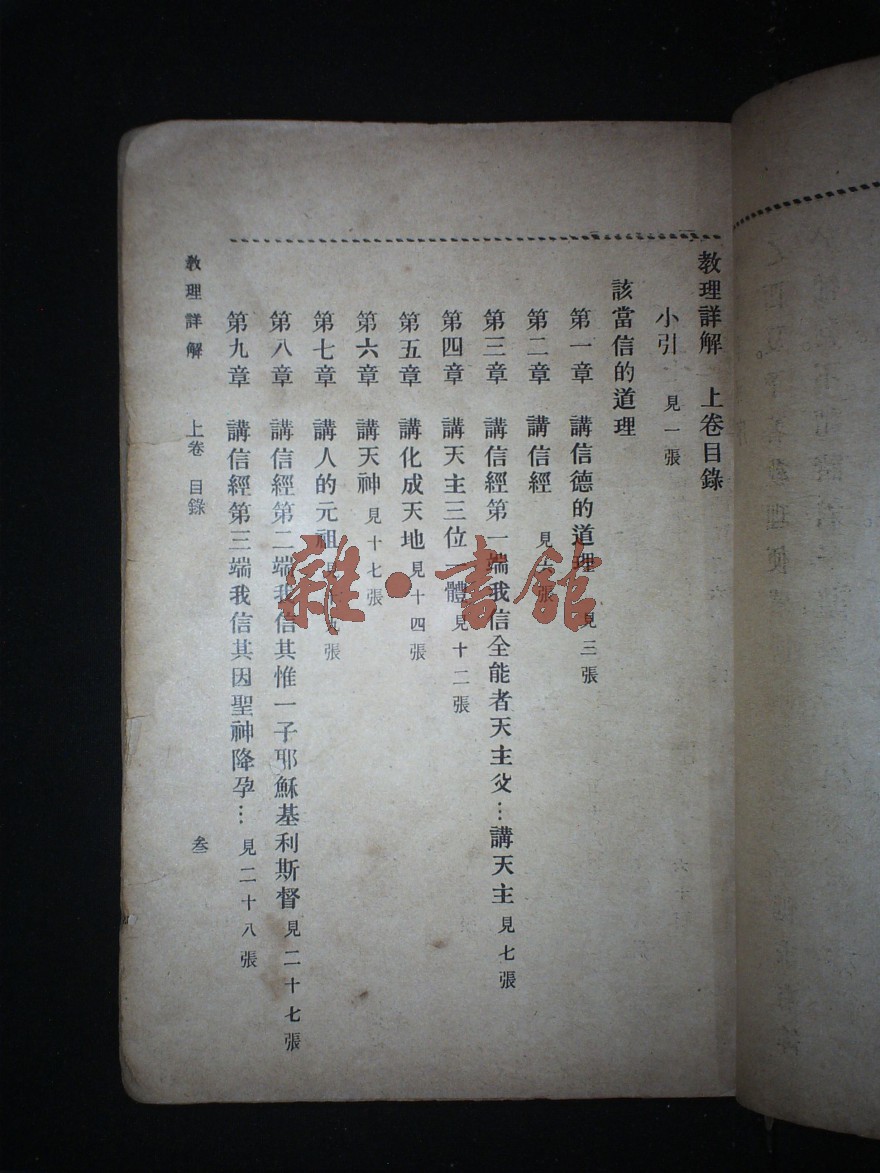 教理詳解 上卷目錄
小引 見一張
該當信的道理
第一章 講信德的道理 見三張
第二章 講信經 見五張
第三章 講信經第一端我信全能者天主父…講天主 見七張
第四章 講天主三位一體 見十二張
第五章 講化成天地 見十四張
第六章 講天神 見十七張
第七章 講人的元祖 見十九張
第八章 講信經第二端我信其惟一子耶穌基利斯督 見二十七張
第九章 講信經第三端我信其因聖神降孕… 見二十八張
教理詳解 上卷 目錄 叁
雜·書館